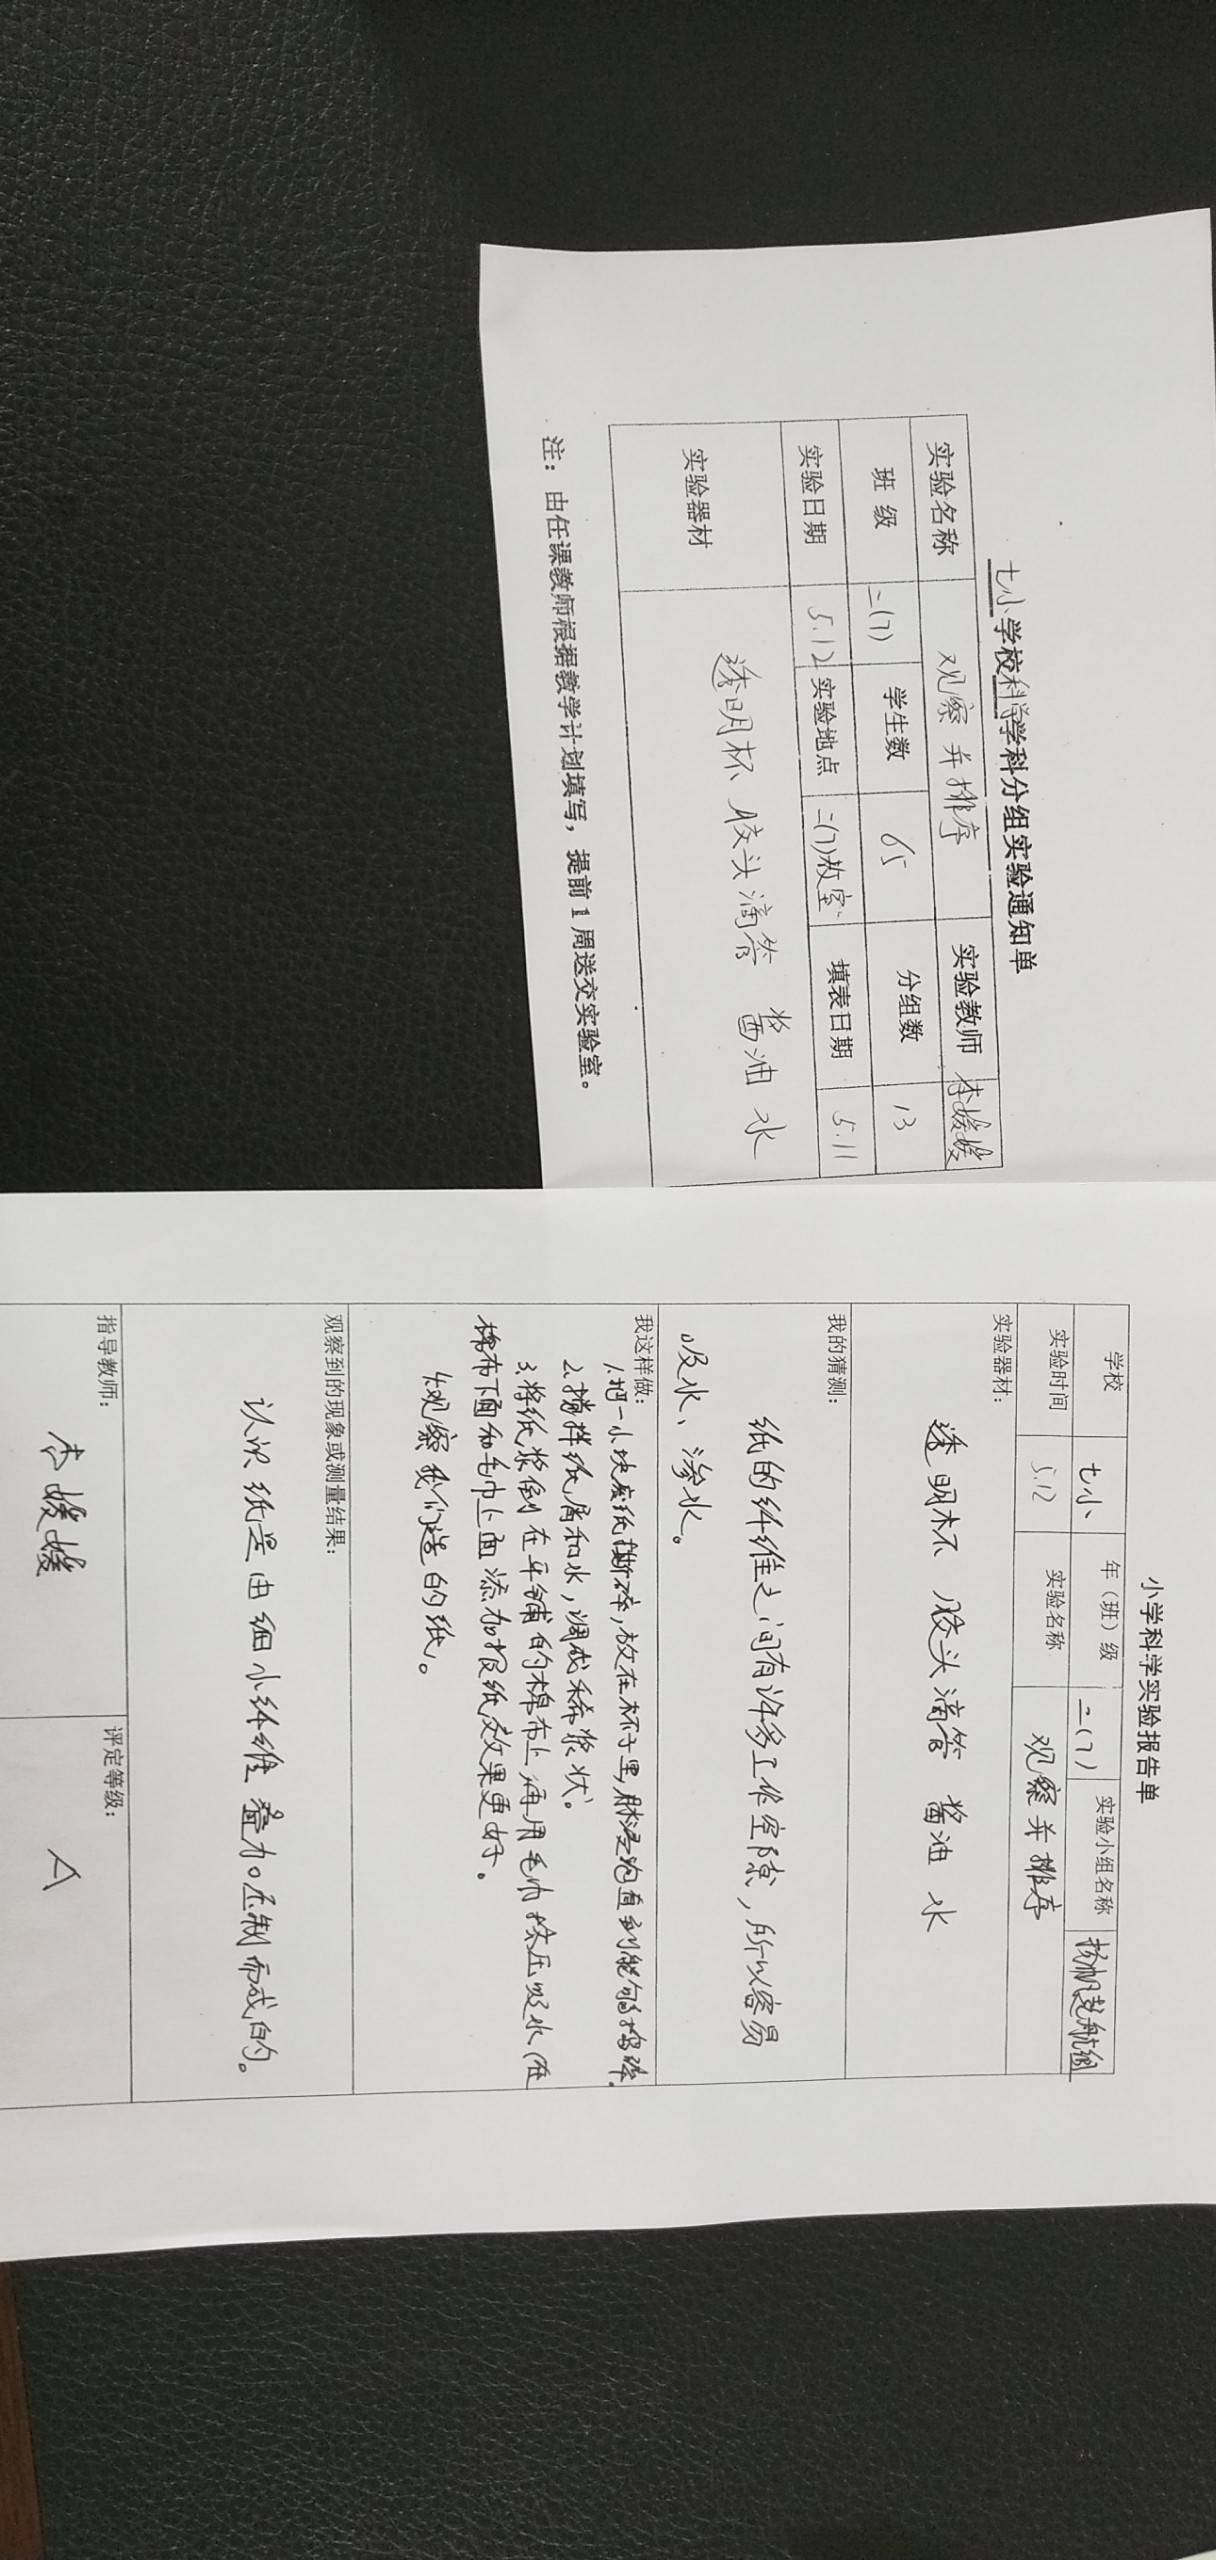 七小学校科学学科分组实验通知单
实验名称 观察并排序 实验教师 李媛媛
班级 二(7) 学生数 65 分组数 13
实验日期 5.12 实验地点 二(7)教室 填表日期 5.11
实验器材 透明杯 胶头滴管 酱油 水
注：由任课教师根据教学计划填写，提前1周送交实验室。
小学科学实验报告单
学校 七小 年（班）级 二(7) 实验小组名称 扬帆起航组
实验时间 5.12 实验名称 观察并排序
实验器材：
透明杯 胶头滴管 酱油 水
我的猜测：
纸的纤维之间有许多工作空隙，所以容易
吸水、渗水。
我这样做：
1.把一小块废纸撕碎，放在杯子里，用水浸泡直到能够捣碎.
2.搅拌纸屑和水，调成稀浆状。
3.将纸浆倒在平铺的棉布上，再用毛巾按压吸水（在
棉布下面和毛巾上面添加报纸效果更好。
4.观察我们造的纸。
观察到的现象或测量结果：
认识纸是由细小纤维叠加压制而成的。
指导教师： 李媛媛 评定等级： A